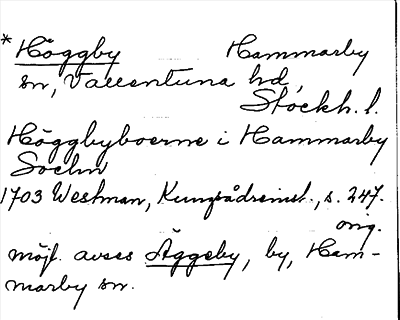 * Höggby Hammarby
sn, Vallentuna hd,
Stockh. l.
Höggbyboerne i Hammarby
Sochn
1703 Westman, Kungsådreinst., s. 247.
orig.
möjl. avses Äggeby, by, Ham-
marby sn.